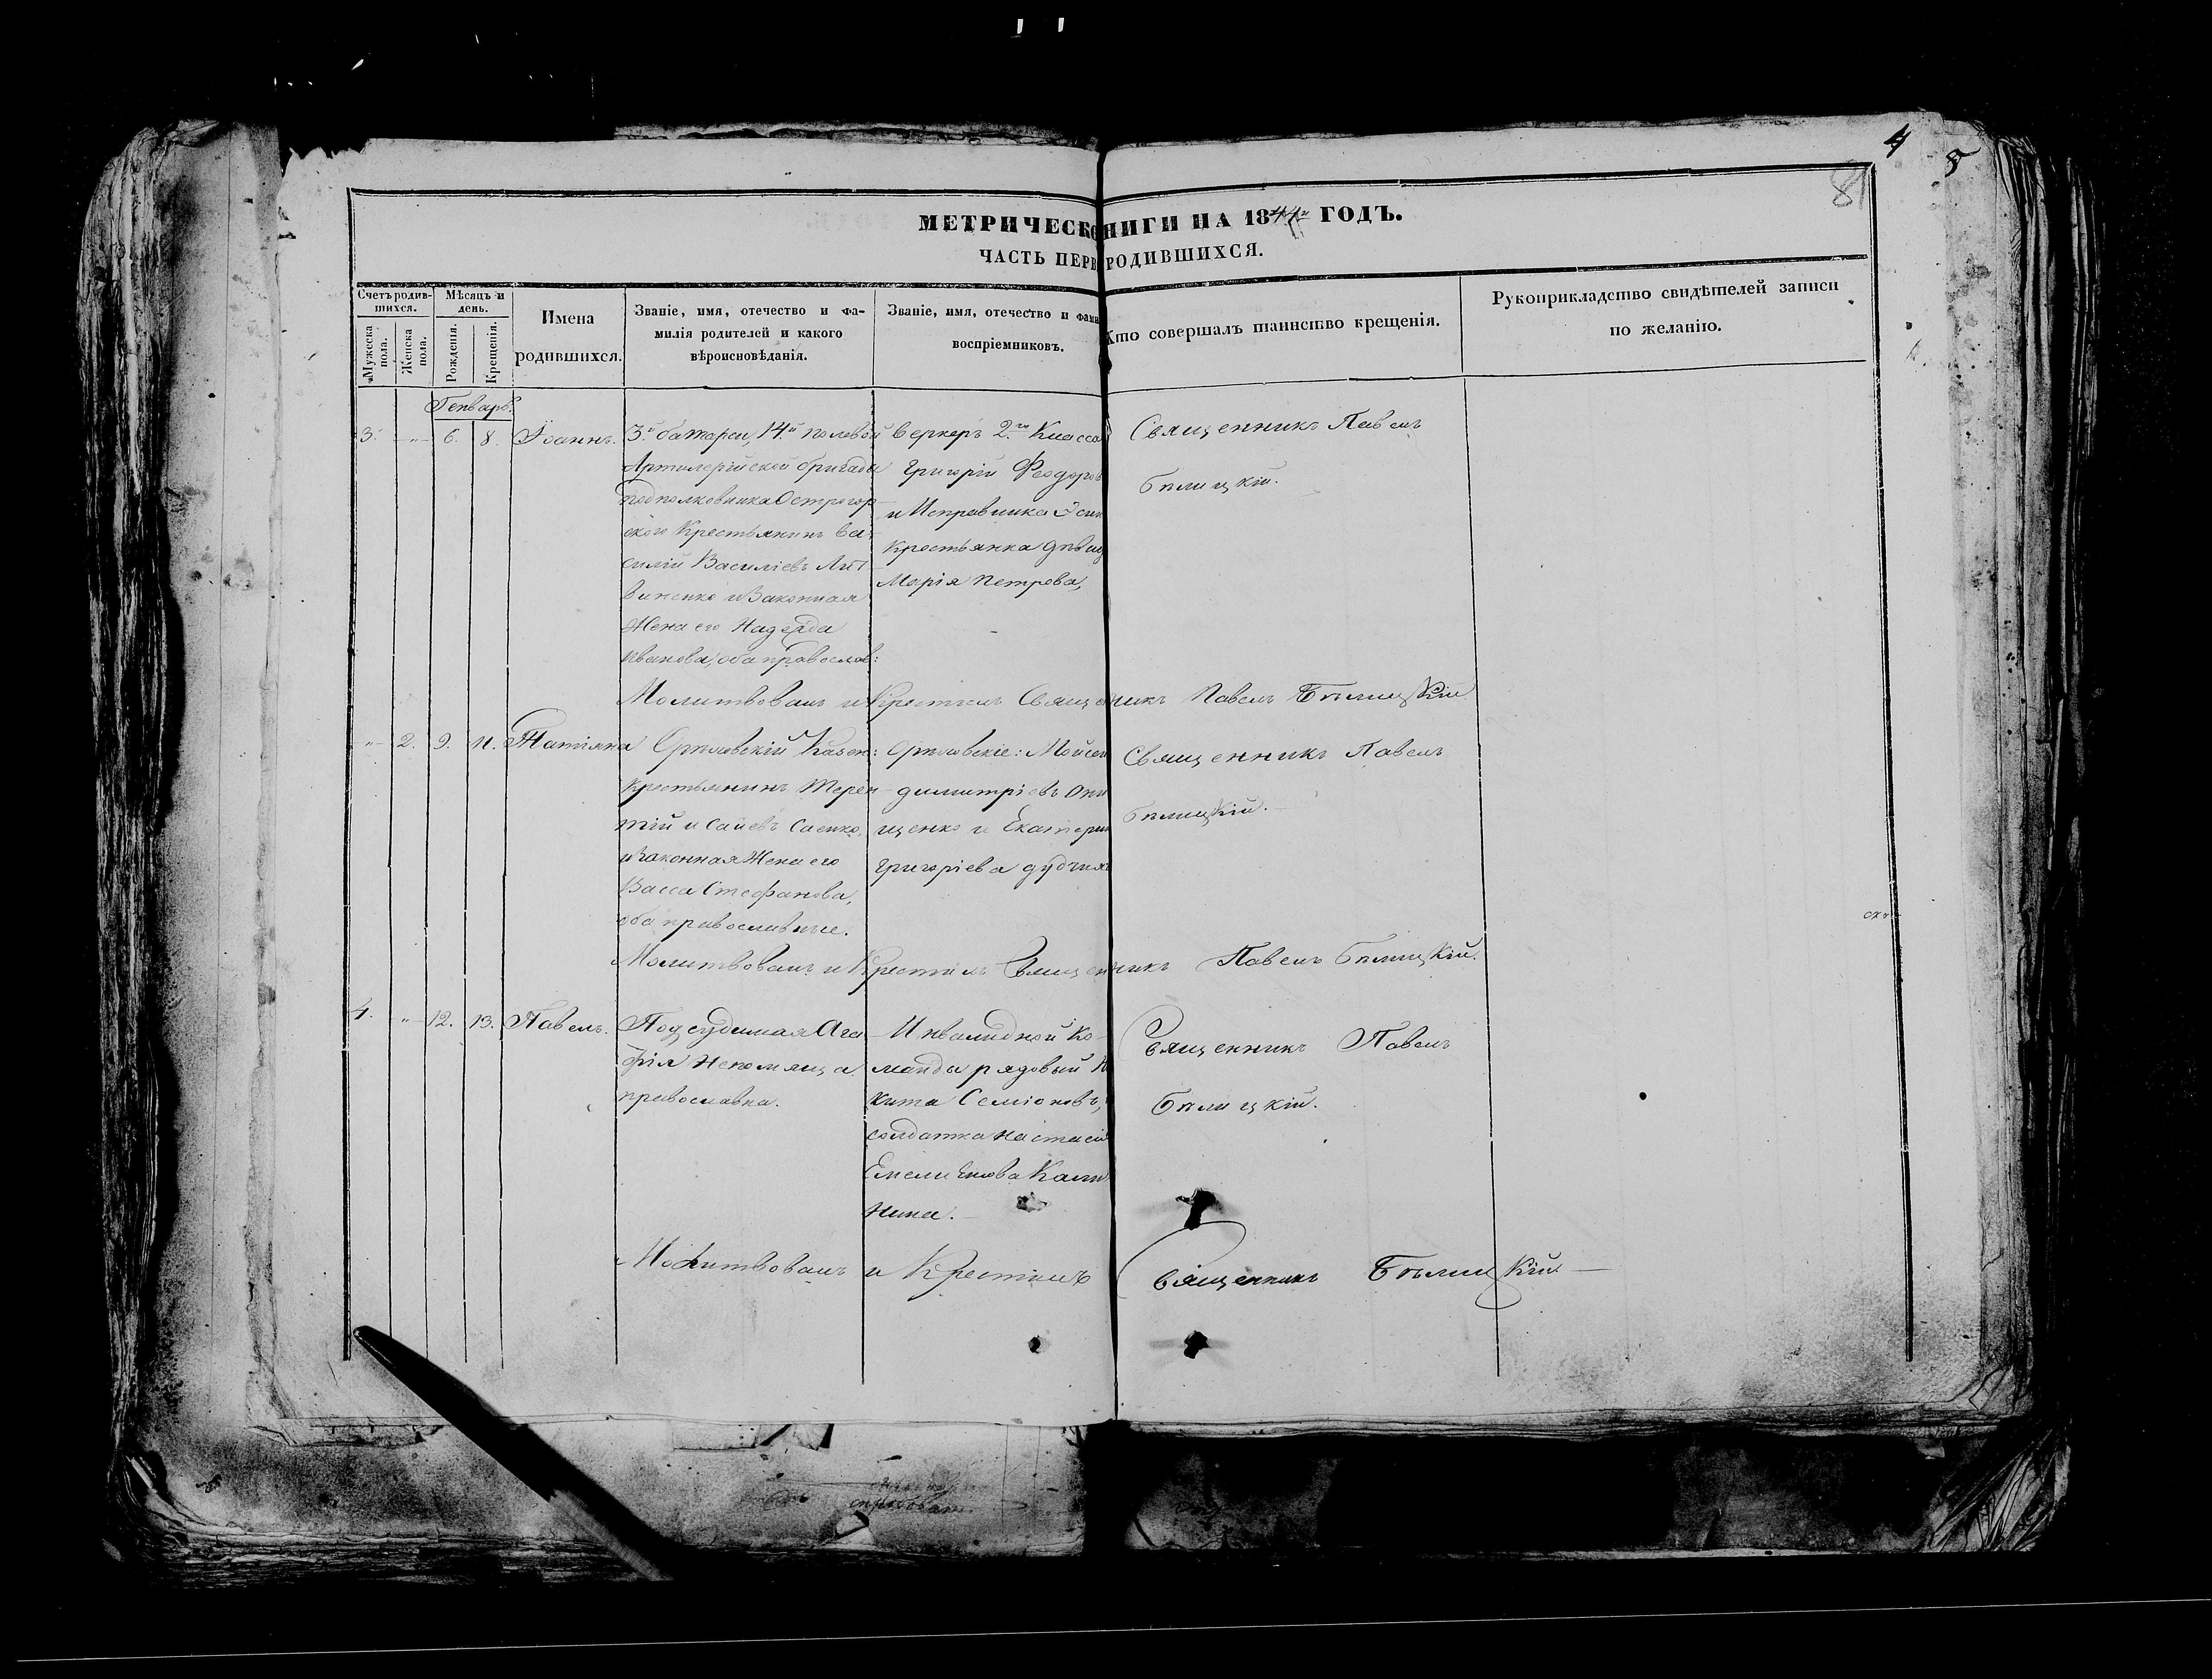 4
5
8
МЕТРИЧЕСКО НИГИ НА 1844 ГОДЪ.
ЧАСТЬ ПЕРВ РОДИВШИХСЯ.
Счетъ родив-
шихся.
Мужеска пола.
Женска пола.
Мѣсяцъ и
день.
Рожденія.
Крещенія.
Имена
родившихся.
Званіе, имя, отечество и фа-
милія родителей и какого
вѣроисновѣданія.
Званіе, имя, отечество и фами
воспріемниковъ.
Кто совершалъ таинство крещенія.
Рукоприкладство свидѣтелей записи
по желанію.
Генварь.
3. " 6. 8. Іоаннъ.
3й батареи, 14й полевой
Артилерійской бригады
подполковника Острогор
ской Крестьянинъ Ва
силій Василіевъ Лит
виненко и Законная
Жена его Надежда
Иванова, оба православ:
2го Класса
Григорій Феодоров
и Исправника
Крестьянка дѣвиц
Марія Петрова,
Священникъ Павелъ
Бѣлицкій.
Молитвовалъ и Крестилъ Священникъ Павелъ Бѣлицкій
" 2. 9. 11. Татіяна
Орѣловскій Казен:
Крестьянинъ Терен
тій Исаіевъ Саенко,
и законная Жена его
Васса Стефанова,
оба православные.
Орѣловскіе: Мойсей
Димитріевъ Они
щенко и Екатерин
Григоріева
Священникъ Павелъ
Бѣлицкій.
Молитвовалъ и Крестилъ Священникъ Павелъ Бѣлицкій.
4. " 12. 13. Павелъ.
Подсудимая Ага
фія Непомяща
православна.
Инвалидной Ко
манды рядовый Н
кита Семіоновъ,
солдатка Настасія
Емеліянова Кали
нина.
Священникъ Павелъ
Бѣлицкій.
Молитвовалъ и Крестилъ Священникъ Бѣлицкій